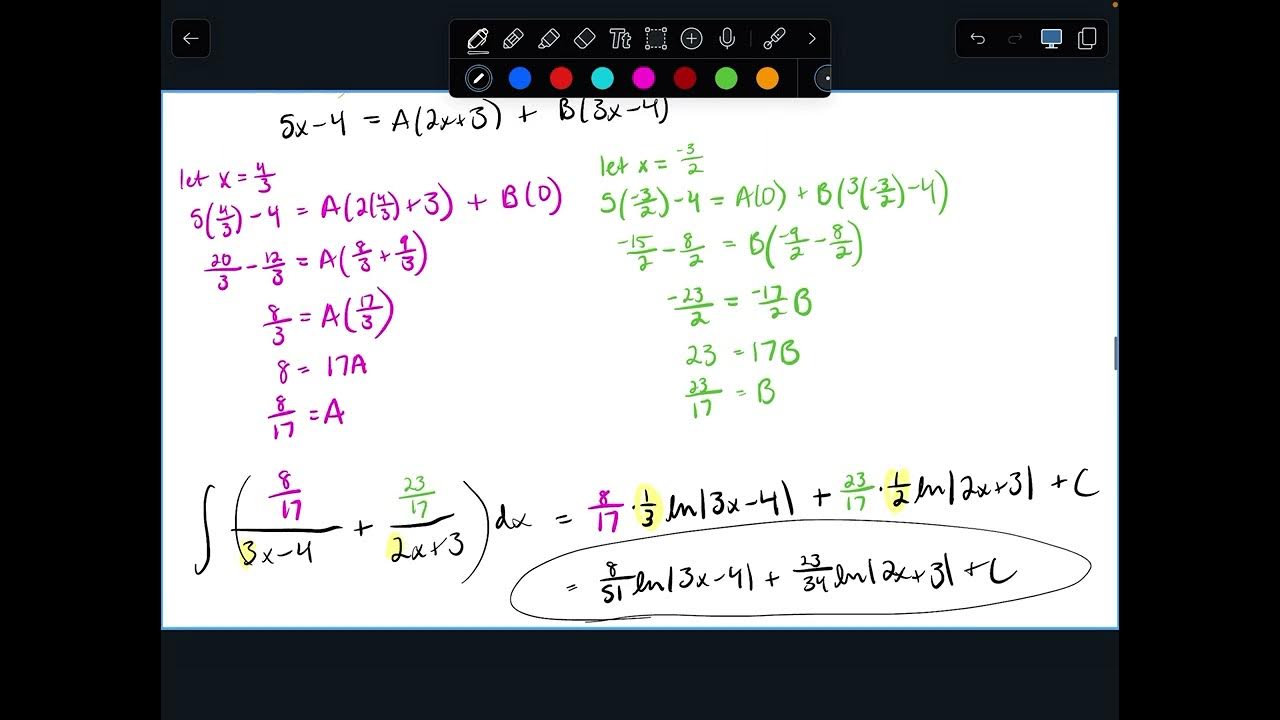 Tt
5x-4 = A(2x+3) + B(3x-4)
let x = 4/3
5(4/3)-4 = A(2(4/3)+3) + B(0)
20/3 - 12/3 = A(8/3 + 9/3)
8/3 = A(17/3)
8 = 17A
8/17 = A
let x = -3/2
5(-3/2)-4 = A(0) + B(3(-3/2)-4)
-15/2 - 8/2 = B(-9/2 - 8/2)
-23/2 = -17/2 B
23 = 17B
23/17 = B
∫( (8/17)/(3x-4) + (23/17)/(2x+3) )dx = 8/17 · 1/3 ln|3x-4| + 23/17 · 1/2 ln|2x+3| + C
= 8/51 ln|3x-4| + 23/34 ln|2x+3| + C